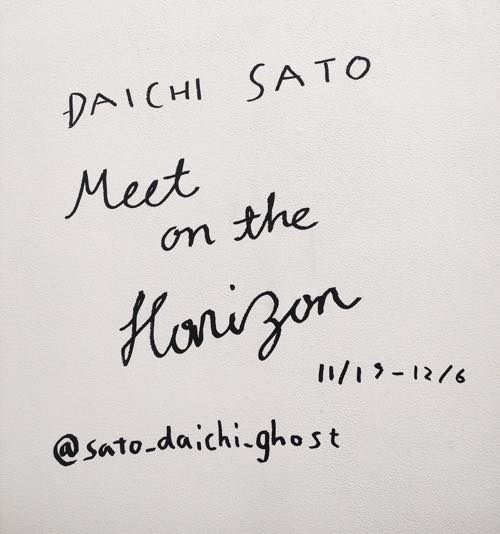 DAICHI SATO
Meet
on the
Horizon
11/19-12/6
@sato_daichi_ghost